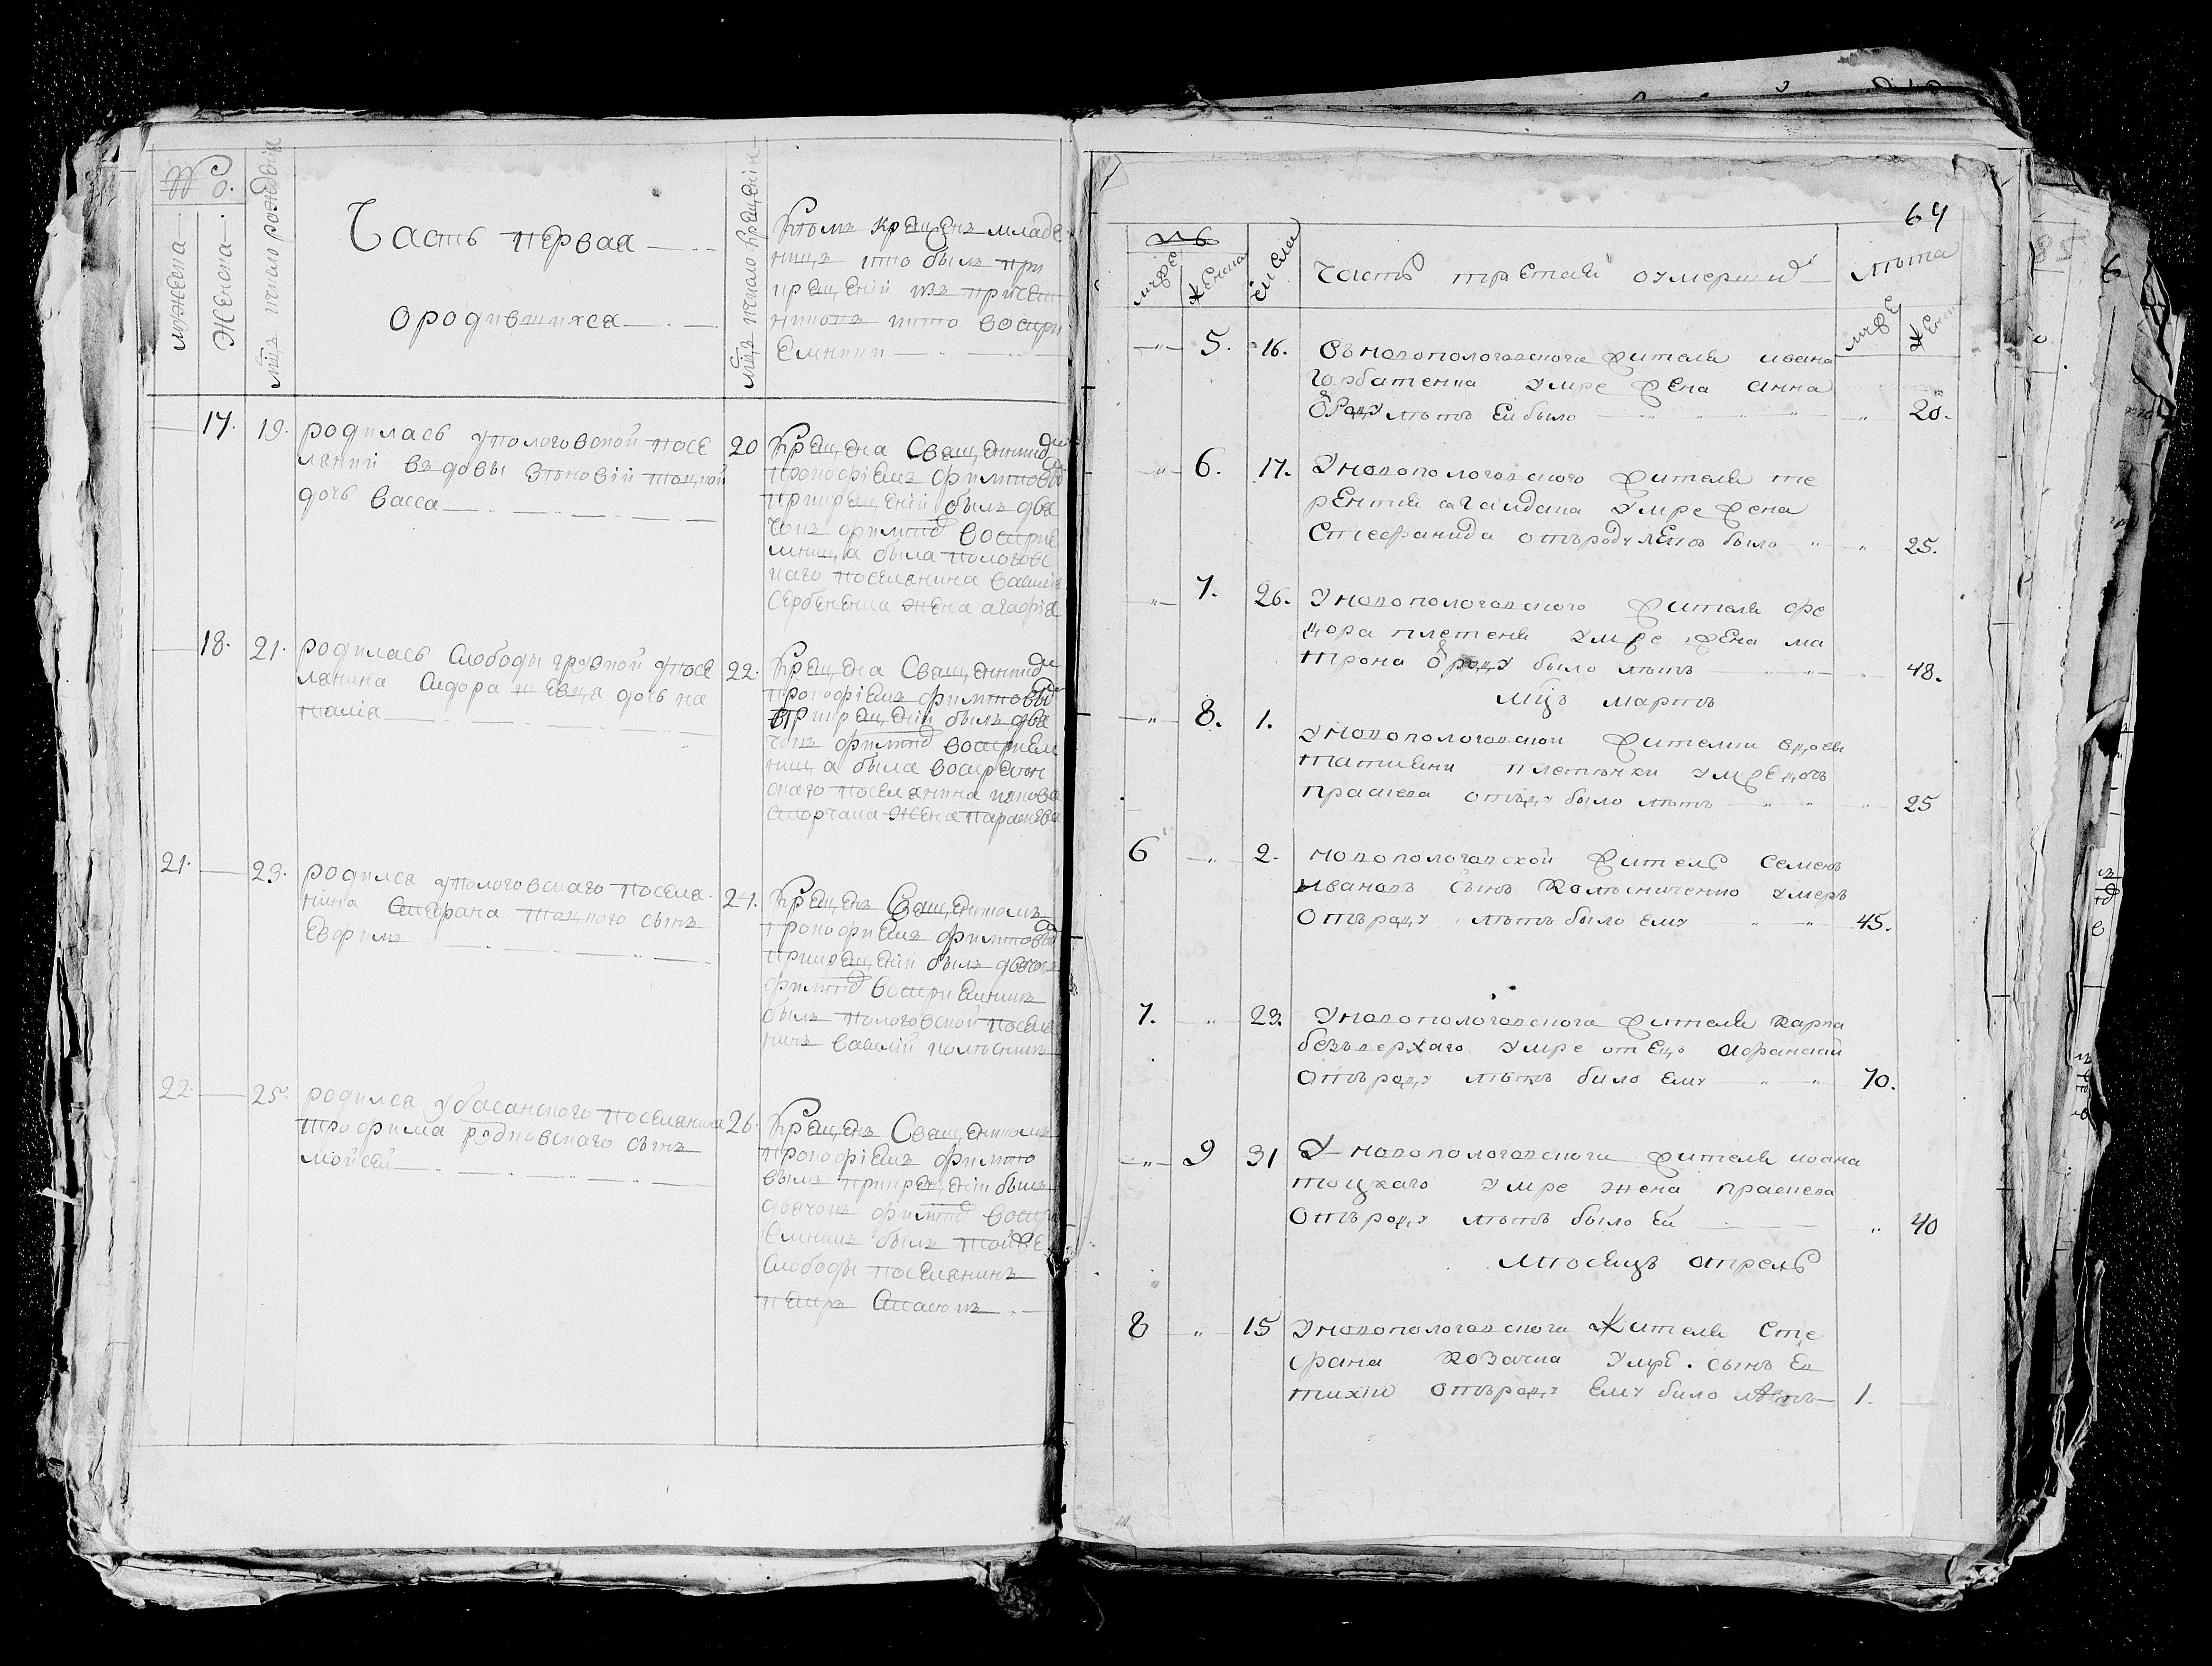 №
мужеска
женска
мцъ ичисло рожденія
Часть первая
ородившихся
мцъ ичисло крещенія
Кѣмъ крещенъ младе
нецъ кто былъ при
крещеніи изъ причет
никовъ икто воспри
емники
17. 19. родилась упологовской посе
лянки вдовы Зѣновіи тоцкой
дочь васса
20 Крещена Священникомъ
прокофіемъ филиповы
прикрещеніи былъ дья
чокъ филипъ воспріе
мница была пологовс
каго поселянина василія
Сербененка жена агафія
18. 21. родилась слободы грузкой упосе
лянина Сидора шевца дочь на
талія
22. Крещена Священникомъ
прокофіемъ филиповы
прикрещеніи былъ дья
чокъ филипъ воспріем
ница была воскресен
скаго поселянина
жена параскева
21. 23. родился упологовскаго поселя
нина Стефана тоцкого сынъ
Евфимъ
24. Крещенъ Священникомъ
прокофіемъ филиповы
прикрещеніи былъ дьячокъ
филипъ воспріемникъ
былъ пологовской поселя
нинъ василій
22. 25. родился убасанского поселянина
трофима сынъ
мойсей
26. Крещенъ Священникомъ
прокофіемъ филипо
вымъ прикрещеніи былъ
дьячокъ филипъ воспри
емникъ былъ тойже
слободы поселянинъ
петръ
64
муже
женска
числа
Часть третая оумершихъ
лѣта
муже
женс
5. 16. Уновопологовского жителя ивана
горбатенка умре жена анна
ѿроду лѣтъ ей было 20.
6. 17. Уновопологовского жителя те
рентия сагайдака умре жена
Стефанида отъроду летъ было 25.
7. 26. Уновопологовского жителя фе
дора плетеня умре жена ма
трона ѿроду было лѣтъ 48.
мцъ мартъ
8. 1. уновопологовской жителки вдовы
татияни плетѣнки умре дочъ
праскева отъроду было лѣтъ 25
6 2. новопологовской житель семенъ
Ивановъ сынъ Колѣсниченко умеръ
Отъроду лѣтъ было ему 45.
7. 23. Уновопологовского жителя карпа
безъверхаго умре отецъ афанасий
Отъроду лѣтъ било ему 70.
9 31 У новопологовского жителя ивана
тоцкаго умре жена праскева
Отъроду лѣтъ было ей 40
Мѣсецъ апрель
8 15 Уновопологовского жителя Сте
фана Козачка умре. сынъ Ев
тихій Отъроду ему било лѣтъ 1.